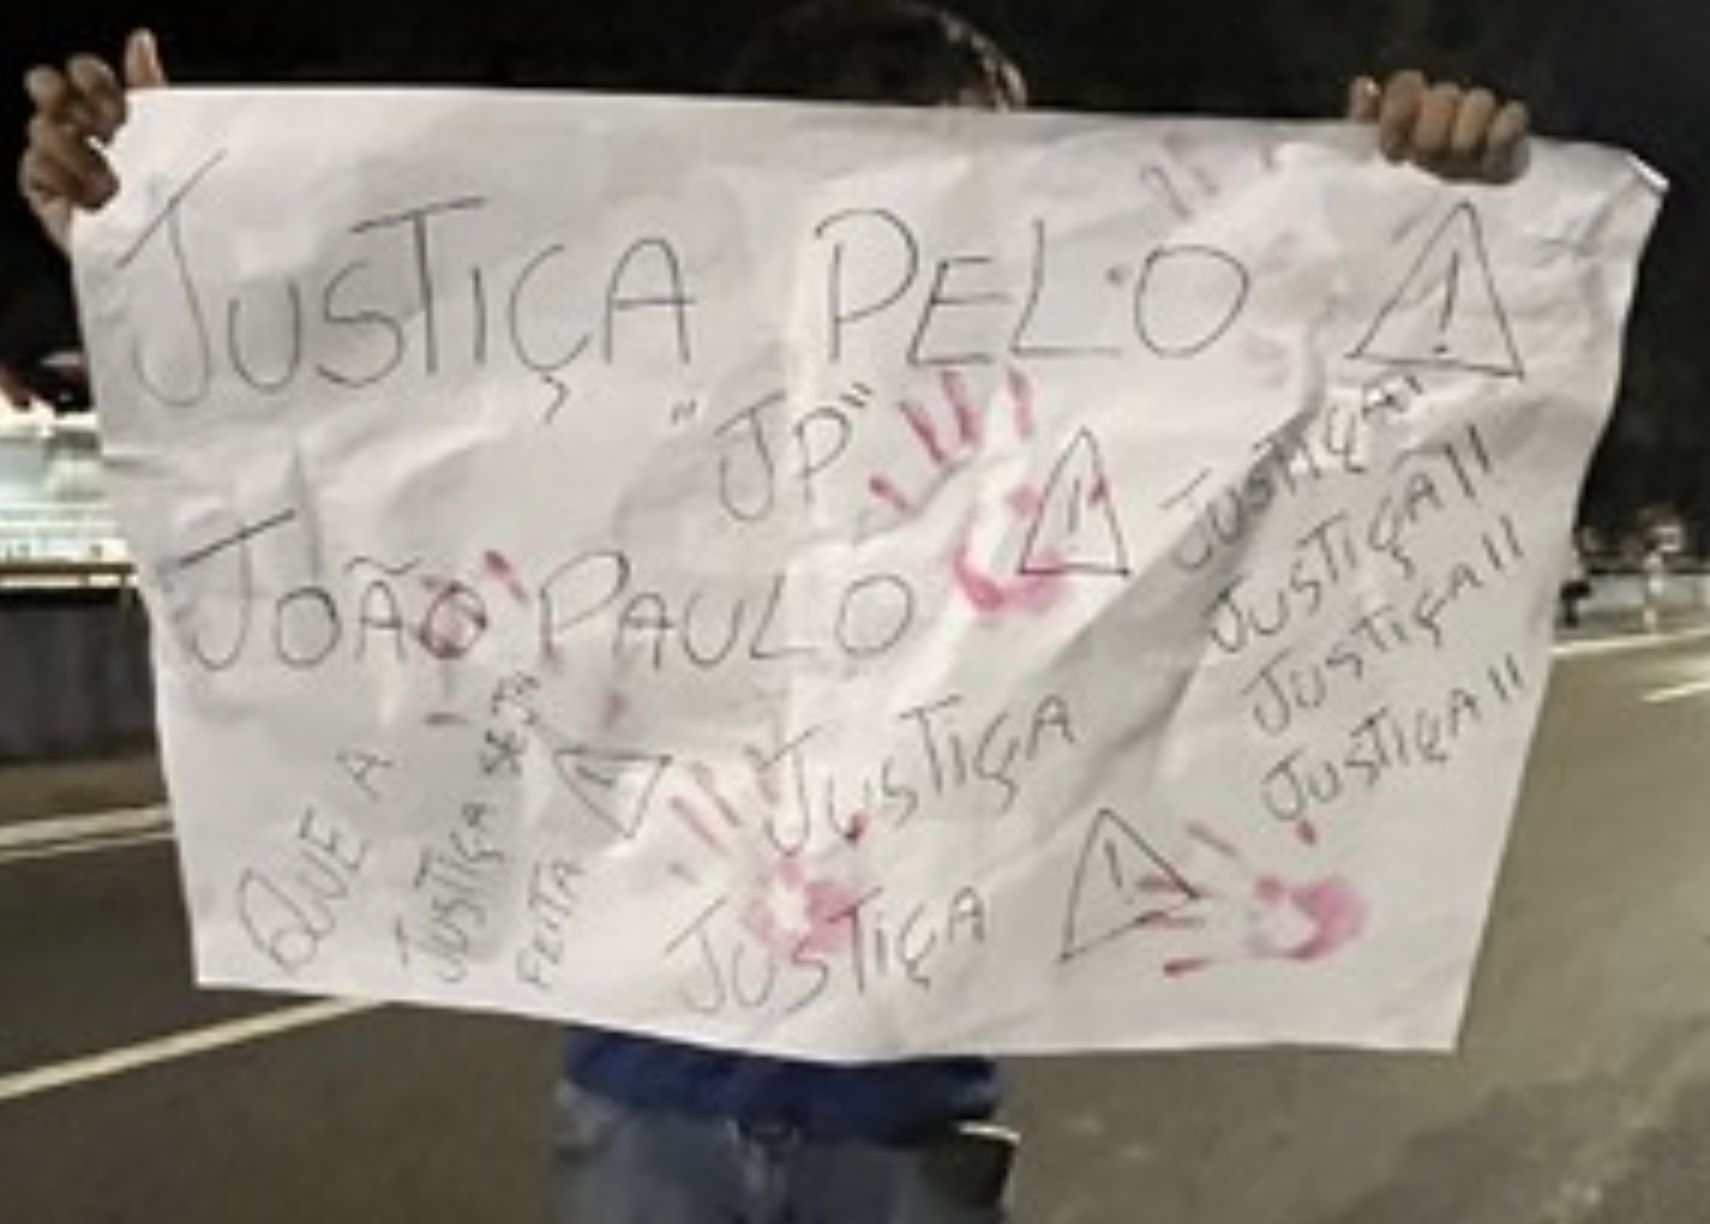 JUSTIÇA PELO
"JP"
JOÃO PAULO
JUSTIÇA!!
JUSTIÇA!!
JUSTIÇA!!
JUSTIÇA!!
QUE A
JUSTIÇA SEJA
FEITA
JUSTIÇA
JUSTIÇA